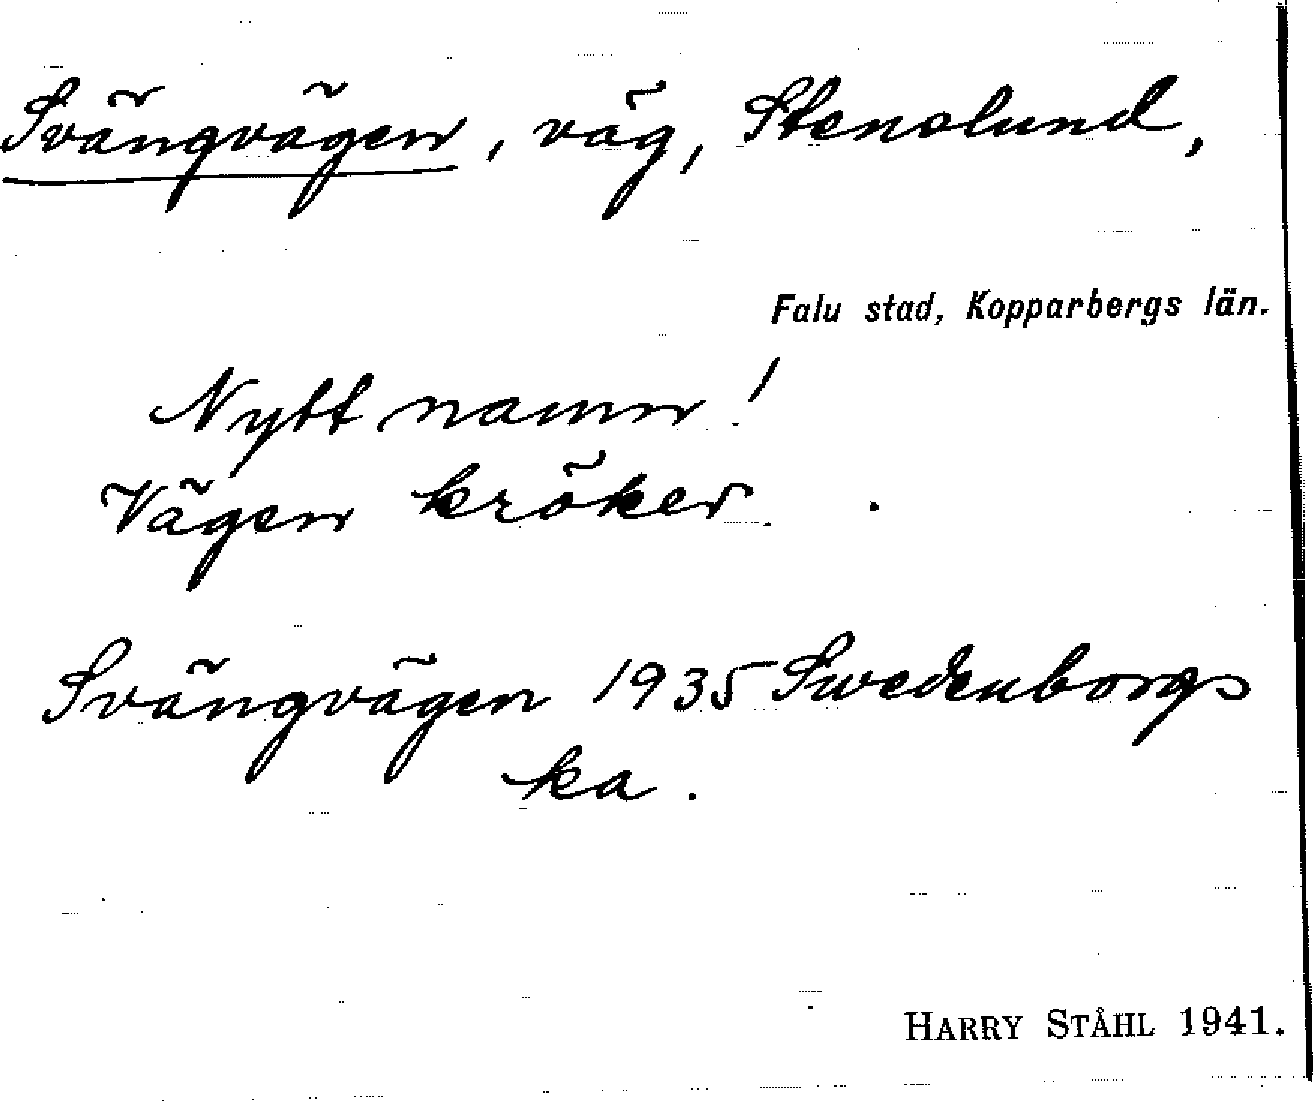 Svängvägen, väg, Stenslund,
Falu stad, Kopparbergs län.
Nytt namn!
Vägen kröker.
Svängvägen 1935 Swedenborgs
ka.
HARRY STÅHL 1941.